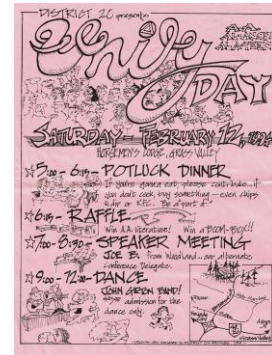 DISTRICT 20 presents:
Unity
DAY
SATURDAY - FEBRUARY 12,
HORSEMEN'S LODGE, GRASS VALLEY
☆5:00 - 6:15 - POTLUCK DINNER
If you're gonna eat, please contribute...if
you don't cook, buy something - even chips
& dip or KFC. Be a part of.
☆6:15 - RAFFLE
Win A.A. literature! Win a BOOM-BOX!!
☆7:00 - 8:30 - SPEAKER MEETING
JOE B. from Woodland... our alternate
conference Delegate.
☆9:00 - 12:00 - DANCE
JOHN GREEN BAND!
admission for the
dance only.